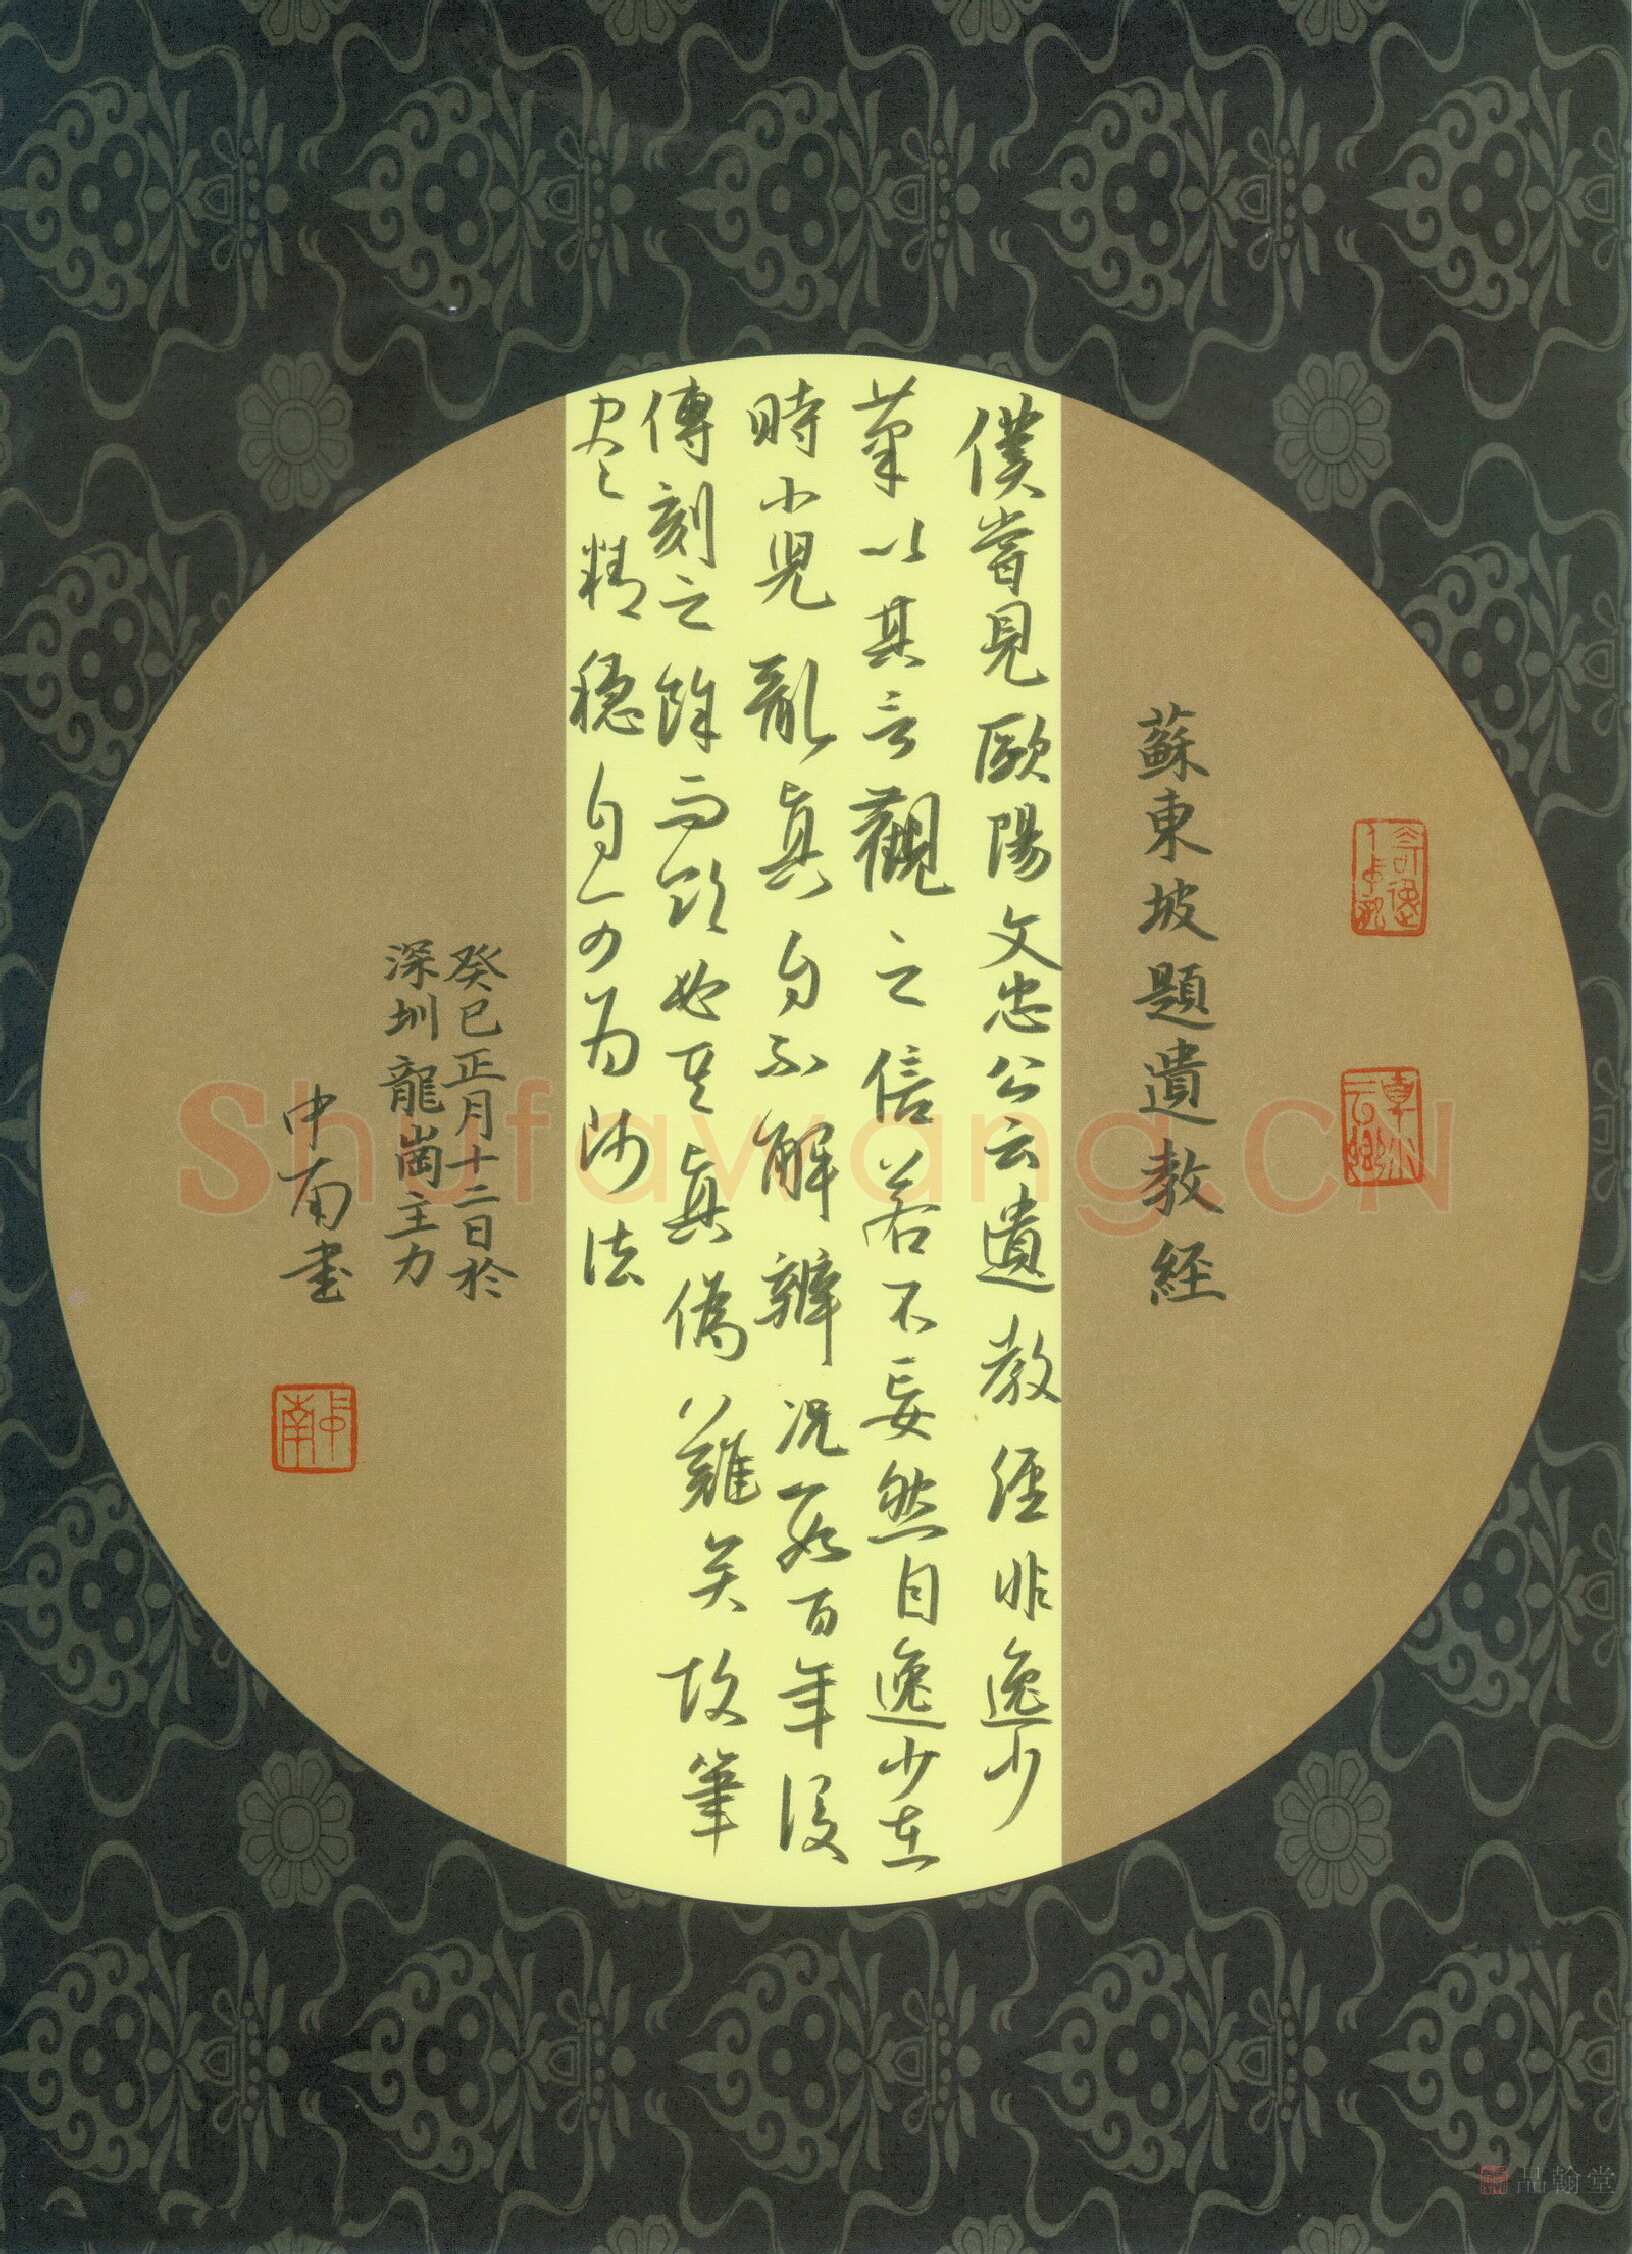 蘇東坡題遺教经
僕嘗見歐陽文忠公云遺教経非逸少
筆以其言觀之信若不妄然自逸少在
時小兒亂真自不解辨況數百年後
傳刻之餘而欲必其真偽難矣故筆
畫精穩自可为師法
癸巳正月十二日於
深圳龍崗主力
中南書
Shufawang.CN
品翰堂